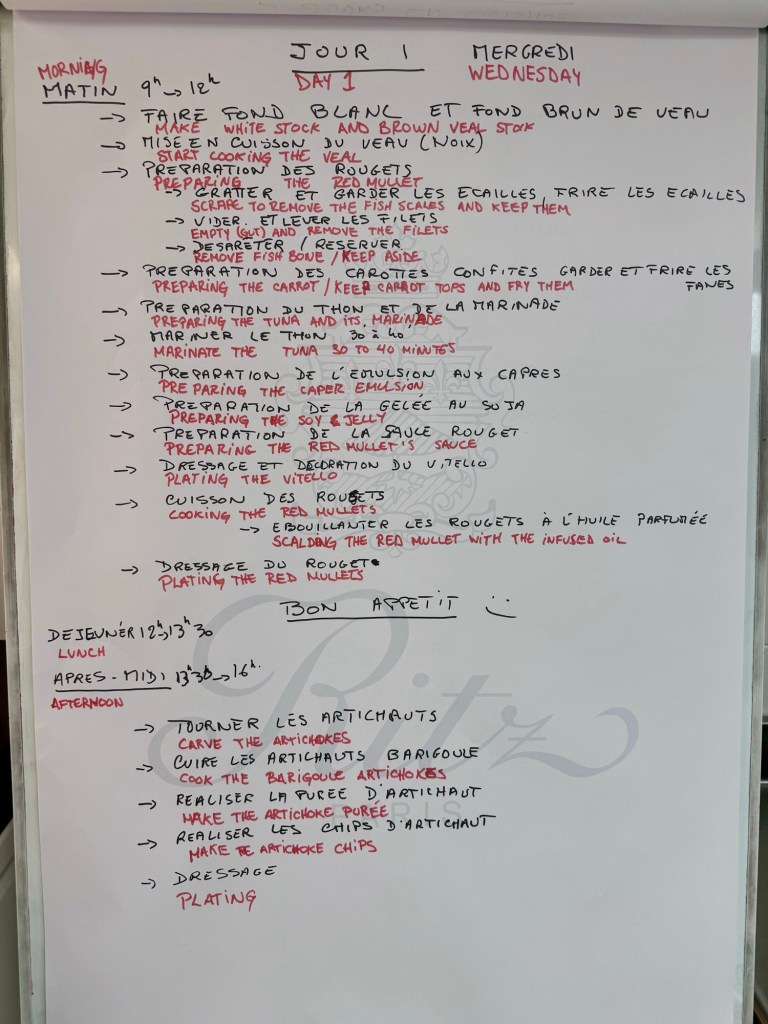 JOUR 1 MERCREDI
MORNING DAY 1 WEDNESDAY
MATIN 9h → 12h
→ FAIRE FOND BLANC ET FOND BRUN DE VEAU
MAKE WHITE STOCK AND BROWN VEAL STOCK
→ MISE EN CUISSON DU VEAU (NOIX)
START COOKING THE VEAL
→ PREPARATION DES ROUGETS
PREPARING THE RED MULLET
→ GRATTER ET GARDER LES ECAILLES, FRIRE LES ECAILLES
SCRAPE TO REMOVE THE FISH SCALES AND KEEP THEM
→ VIDER. ET LEVER LES FILETS
EMPTY (GUT) AND REMOVE THE FILETS
→ DESARETER / RESERVER
REMOVE FISH BONE / KEEP ASIDE
→ PREPARATION DES CAROTTES CONFITES GARDER ET FRIRE LES FANES
PREPARING THE CARROT / KEEP CARROT TOPS AND FRY THEM
→ PREPARATION DU THON ET DE LA MARINADE
PREPARING THE TUNA AND ITS MARINADE
→ MARINER LE THON 30 à 40'
MARINATE THE TUNA 30 TO 40 MINUTES
→ PREPARATION DE L'EMULSION AUX CAPRES
PREPARING THE CAPER EMULSION
→ PREPARATION DE LA GELÉE AU SOJA
PREPARING THE SOY JELLY
→ PREPARATION DE LA SAUCE ROUGET
PREPARING THE RED MULLET'S SAUCE
→ DRESSAGE ET DECORATION DU VITELLO
PLATING THE VITELLO
→ CUISSON DES ROUGETS
COOKING THE RED MULLETS
→ EBOUILLANTER LES ROUGETS À L'HUILE PARFUMÉE
SCALDING THE RED MULLET WITH THE INFUSED OIL
→ DRESSAGE DU ROUGET
PLATING THE RED MULLETS
BON APPETIT :)
DEJEUNER 12h → 13h30
LUNCH
APRES-MIDI 13h30 → 16h.
AFTERNOON
→ TOURNER LES ARTICHAUTS
CARVE THE ARTICHOKES
→ CUIRE LES ARTICHAUTS BARIGOULE
COOK THE BARIGOULE ARTICHOKES
→ REALISER LA PUREE D'ARTICHAUT
MAKE THE ARTICHOKE PURÉE
→ REALISER LES CHIPS D'ARTICHAUT
MAKE THE ARTICHOKE CHIPS
→ DRESSAGE
PLATING
Ritz
PARIS